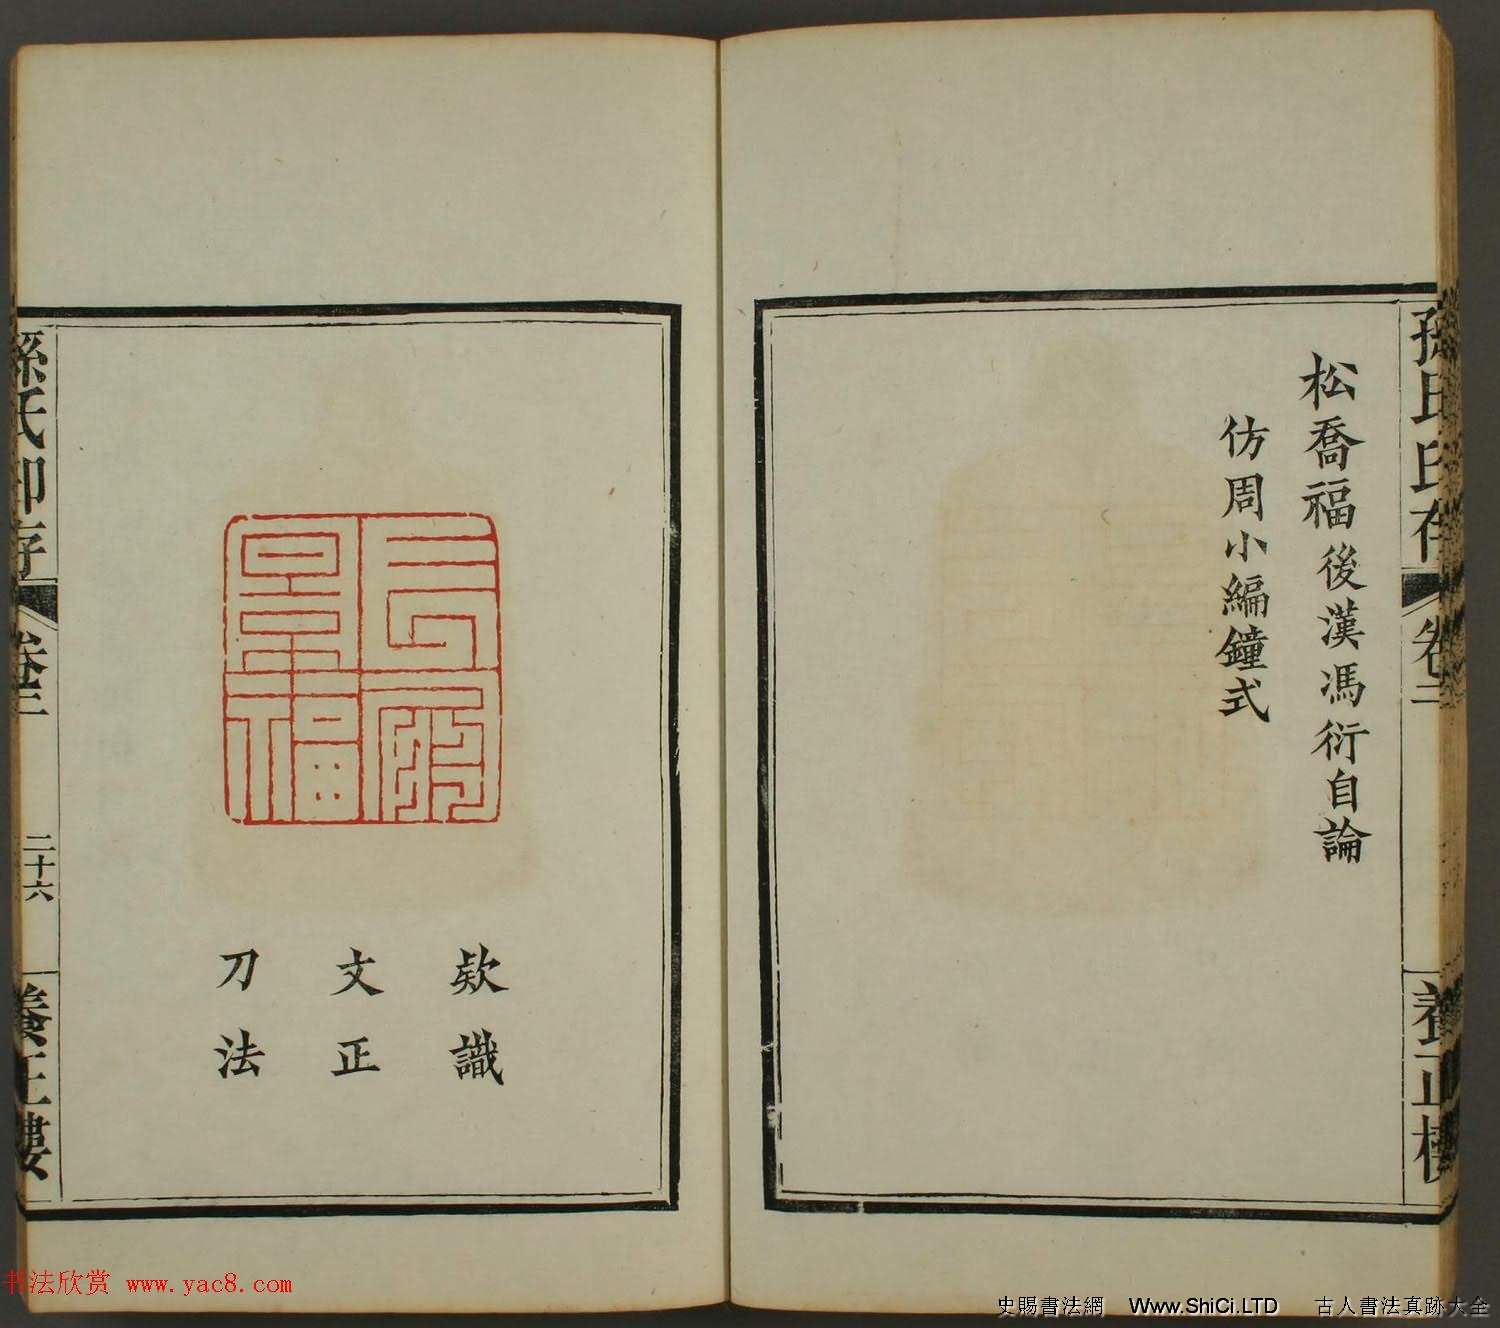 孫氏印存
卷三
養正樓
松喬福後漢馮衍自論
仿周小編鐘式
欵識
文正
刀法
孫氏印存
卷三
二十六
養正樓
书法欣赏 www.yac8.com
史賜書法網 Www.ShiCi.LTD 古人書法真跡大全